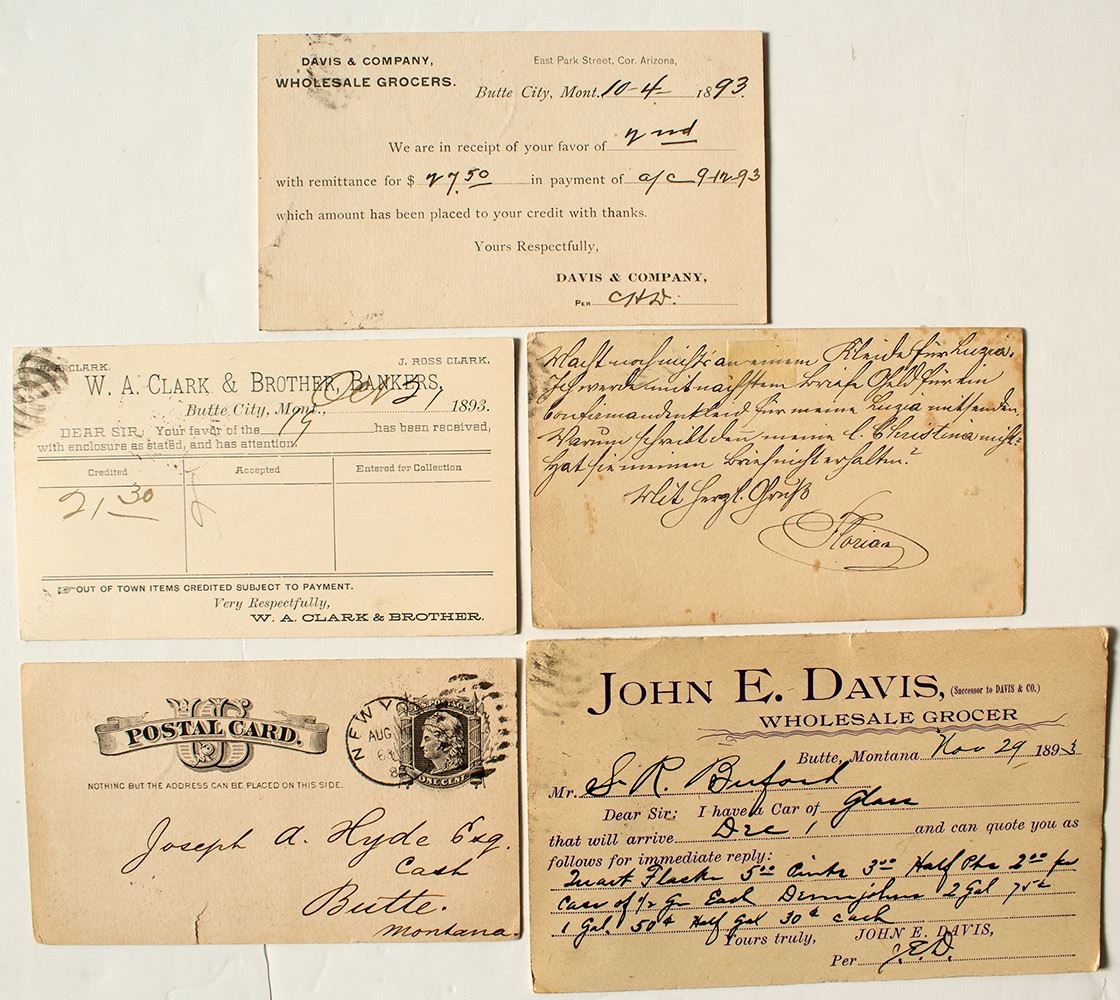 DAVIS & COMPANY,
WHOLESALE GROCERS.
East Park Street, Cor. Arizona,
Butte City, Mont. 10-4- 1893.
We are in receipt of your favor of 2nd
with remittance for $ 27.50 in payment of a/c 9-12-93
which amount has been placed to your credit with thanks.
Yours Respectfully,
DAVIS & COMPANY,
PER CHD.
W. A. CLARK. J. ROSS CLARK.
W. A. CLARK & BROTHER, BANKERS,
Butte City, Mont., Oct 21 1893.
DEAR SIR: Your favor of the 19 has been received,
with enclosure as stated, and has attention.
Credited Accepted Entered for Collection
21.30
OUT OF TOWN ITEMS CREDITED SUBJECT TO PAYMENT.
Very Respectfully,
W. A. CLARK & BROTHER.
Macht noch nichts an einem Kleide für Luzia.
Ich werde mit nächstem Briefe Geld für ein
Confirmandenkleid für meine Luzia mitsenden.
Warum schreibt denn meine l. Christina nicht?
Hat sie meinen Brief nicht erhalten?
Mit herzl. Gruß
Florian
US
POSTAL CARD.
NOTHING BUT THE ADDRESS CAN BE PLACED ON THIS SIDE.
NEW Y
AUG
ONE CENT
Joseph A. Hyde Esq.
Cash
Butte.
Montana.
JOHN E. DAVIS, (Successor to DAVIS & CO.)
WHOLESALE GROCER
Butte, Montana Nov 29 1893
Mr. S. R. Buford
Dear Sir: I have a Car of Glass
that will arrive Dec 1 and can quote you as
follows for immediate reply:
Quart Flasks 5.00 Pints 3.00 Half Pts 2.00 per
Case of 1/2 Gr Each Demijohns 2 Gal 75¢
1 Gal. 50¢ Half Gal 30¢ each
Yours truly, JOHN E. DAVIS,
Per J.E.D.